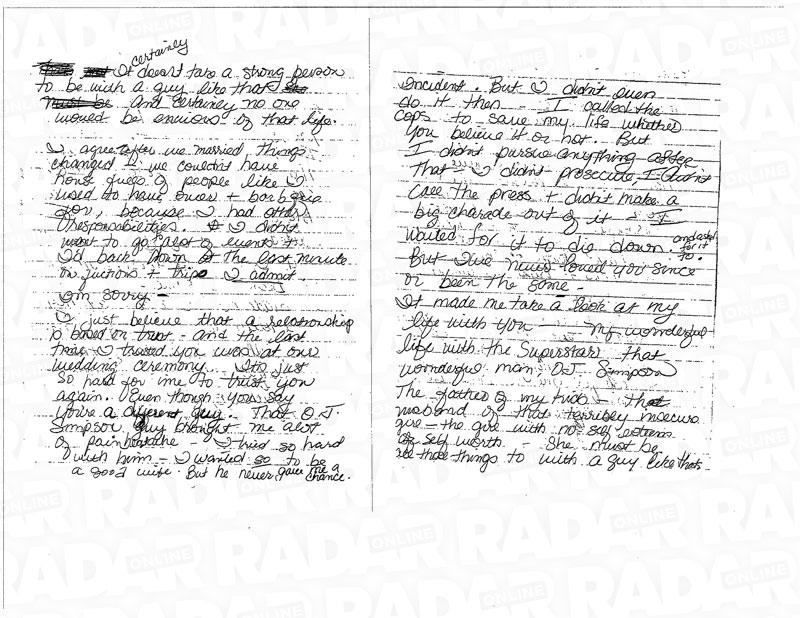 certainley
It doesn't take a strong person
to be with a guy like that
must be and certainley no one
would be envious of that life.
I agree after we married things
changed – we couldn't have
house fulls of people like I
used to have over + barbque
for, because I had other
responsibilities. I didn't
want to go alot of events +
I'd back down at the last minute
on fuctions + trips I admit
I'm sorry –
I just believe that a relationship
is based on trust – and the last
time I trusted you was at our
wedding ceremony. It's just
so hard for me to trust you
again. Even though you say
you're a different guy. That O.J.
Simpson guy brought me alot
of pain heartache – I tried so hard
with him – I wanted so to be
a good wife. But he never gave me a
chance.
incident. But I didn't even
do it then – I called the
cops to save my life whether
you believe it or not. But
I didn't pursue anything after
that – I didn't prosecute, I didn't
call the press + didn't make a
big charade out of it – I
waited for it to die down. and asked
for it
to.
But I've never loved you since
or been the same –
It made me take a look at my
life with you – my wonderful
life with the superstar that
wonderful man, O.J. Simpson
The father of my kids – that
husband of that terribly insecure
girl – the girl with no self esteem
of self worth – she must be
those things to with a guy like that.
RADAR
ONLINE